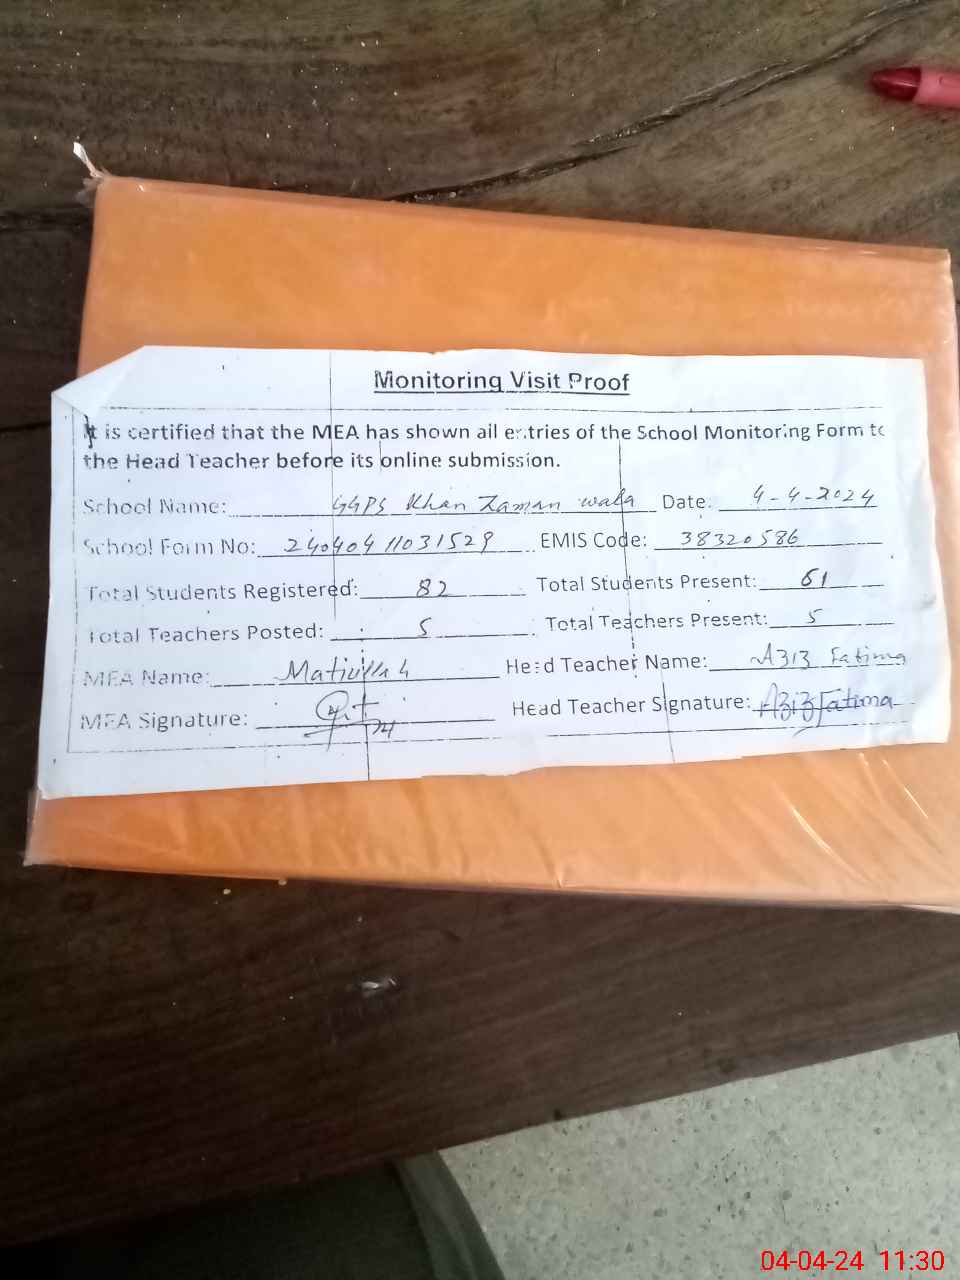 Monitoring Visit Proof
It is certified that the MEA has shown all entries of the School Monitoring Form to
the Head Teacher before its online submission.
School Name: GGPS Khan Zaman wala Date: 4-4-2024
School Form No: 240404 11031529 EMIS Code: 38320586
Total Students Registered: 82 Total Students Present: 61
Total Teachers Posted: 5 Total Teachers Present: 5
MEA Name: Matiullah Head Teacher Name: Aziz Fatima
MEA Signature: Head Teacher Signature: Aziz Fatima
04-04-24 11:30